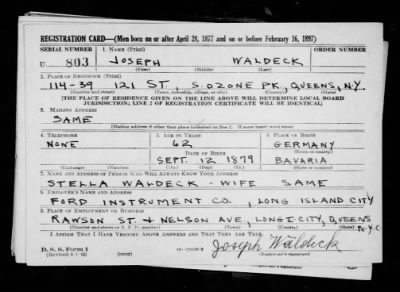 REGISTRATION CARD—(Men born on or after April 28, 1877 and on or before February 16, 1897)
SERIAL NUMBER 1. NAME (Print) ORDER NUMBER
U 803 JOSEPH WALDECK
(First) (Middle) (Last)
2. PLACE OF RESIDENCE (Print)
114-39 121 ST. S. OZONE PK, QUEENS, N.Y.
(Number and street) (Town, township, village, or city) (County) (State)
[THE PLACE OF RESIDENCE GIVEN ON THE LINE ABOVE WILL DETERMINE LOCAL BOARD
JURISDICTION; LINE 2 OF REGISTRATION CERTIFICATE WILL BE IDENTICAL]
3. MAILING ADDRESS
SAME
[Mailing address if other than place indicated on line 2. If same insert word same]
4. TELEPHONE 5. AGE IN YEARS 6. PLACE OF BIRTH
NONE 62 GERMANY
DATE OF BIRTH
SEPT. 12 1879 BAVARIA
7. NAME AND ADDRESS OF PERSON WHO WILL ALWAYS KNOW YOUR ADDRESS
STELLA WALDECK - WIFE SAME
8. EMPLOYER'S NAME AND ADDRESS
FORD INSTRUMENT CO, LONG ISLAND CITY
9. PLACE OF EMPLOYMENT OR BUSINESS
RAWSON ST. & NELSON AVE, LONG I. CITY, QUEENS
N.Y.C
I AFFIRM THAT I HAVE VERIFIED ABOVE ANSWERS AND THAT THEY ARE TRUE.
D. S. S. Form 1
(Revised 4-1-42) (over) Joseph Waldeck